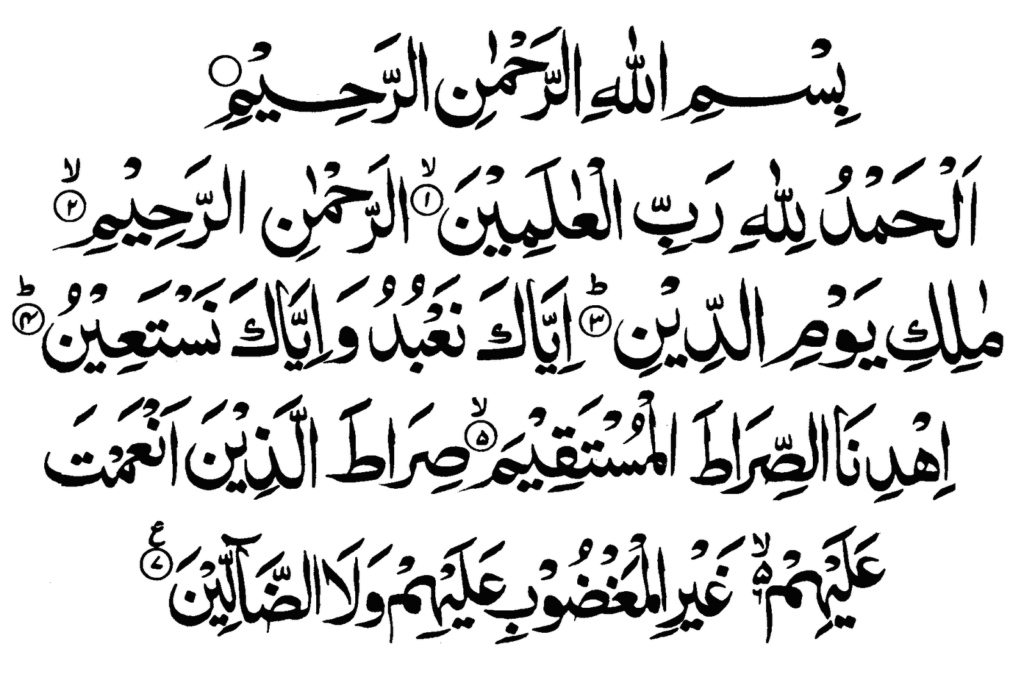 بِسْمِ اللهِ الرَّحْمٰنِ الرَّحِيْمِ ○
اَلْحَمْدُ لِلّٰهِ رَبِّ الْعٰلَمِيْنَ ۙ﴿۱﴾ الرَّحْمٰنِ الرَّحِيْمِ ۙ﴿۲﴾
مٰلِكِ يَوْمِ الدِّيْنِ ؕ﴿۳﴾ اِيَّاكَ نَعْبُدُ وَاِيَّاكَ نَسْتَعِيْنُ ؕ﴿۴﴾
اِهْدِنَا الصِّرَاطَ الْمُسْتَقِيْمَ ۙ﴿۵﴾ صِرَاطَ الَّذِيْنَ اَنْعَمْتَ
عَلَيْهِمْ ۙ۬ غَيْرِ الْمَغْضُوْبِ عَلَيْهِمْ وَلَا الضَّآلِّيْنَ ﴿۷﴾ ع